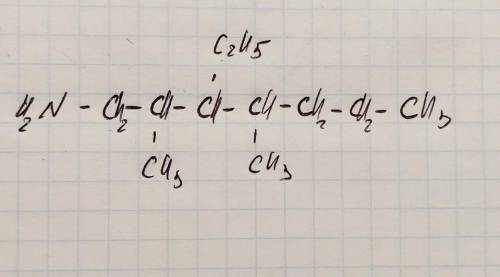 C₂H₅
H₂N - CH₂ - CH - CH - CH - CH₂ - CH₂ - CH₃
CH₃ CH₃